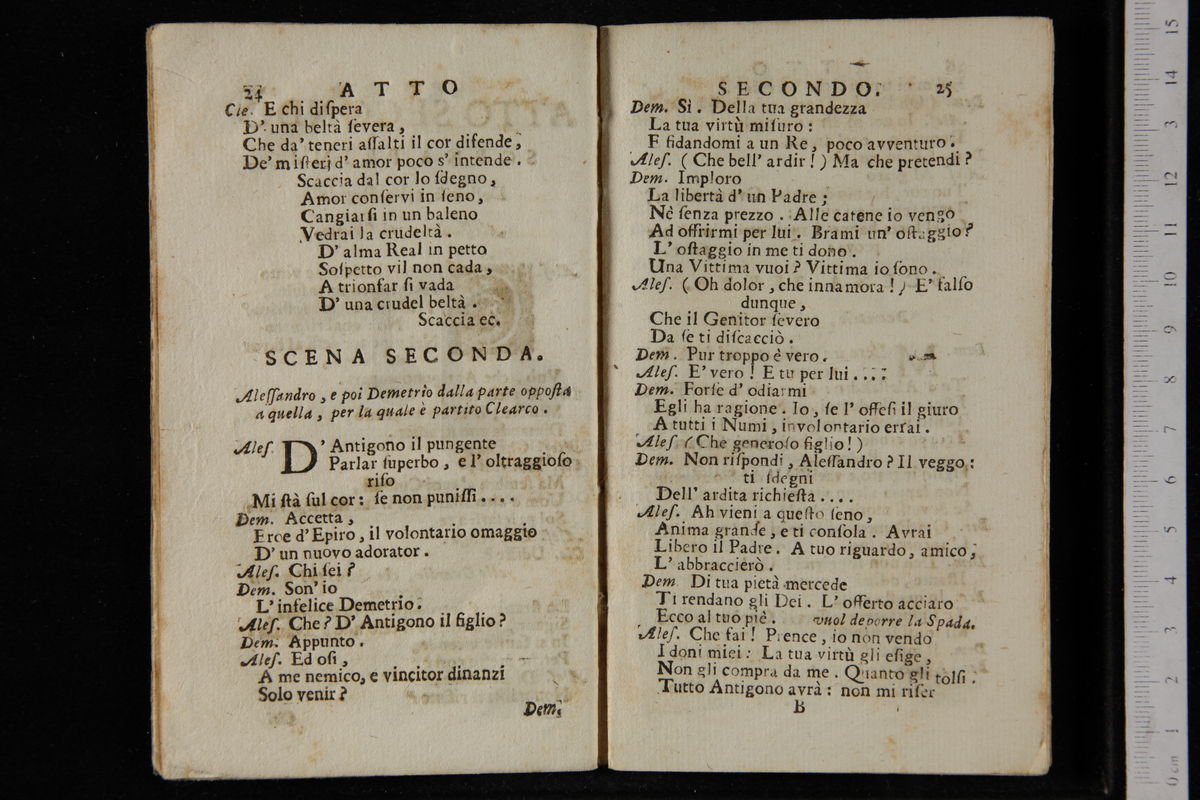 24 ATTO
Cle. E chi diſpera
D'una beltà ſevera,
Che da' teneri aſſalti il cor difende,
De' miſterj d'amor poco s'intende.
Scaccia dal cor lo ſdegno,
Amor conſervi in ſeno,
Cangiarſi in un baleno
Vedrai la crudeltà.
D'alma Real in petto
Soſpetto vil non cada,
A trionfar ſi vada
D'una crudel beltà.
Scaccia ec.
SCENA SECONDA.
Aleſſandro, e poi Demetrio dalla parte oppoſta
a quella, per la quale è partito Clearco.
Aleſ. D'Antigono il pungente
Parlar ſuperbo, e l'oltraggioſo
riſo
Mi ſtà ſul cor: ſe non puniſſi....
Dem. Accetta,
Eroe d'Epiro, il volontario omaggio
D'un nuovo adorator.
Aleſ. Chi ſei?
Dem. Son' io
L'infelice Demetrio.
Aleſ. Che? D'Antigono il figlio?
Dem. Appunto.
Aleſ. Ed oſi,
A me nemico, e vincitor dinanzi
Solo venir?
Dem.
SECONDO. 25
Dem. Sì. Della tua grandezza
La tua virtù miſuro:
E fidandomi a un Re, poco avventuro.
Aleſ. (Che bell' ardir!) Ma che pretendi?
Dem. Imploro
La libertà d'un Padre;
Nè ſenza prezzo. Alle catene io vengo
Ad offrirmi per lui. Brami un' oſtaggio?
L'oſtaggio in me ti dono.
Una Vittima vuoi? Vittima io ſono.
Aleſ. (Oh dolor, che innamora!) E' falſo
dunque,
Che il Genitor ſevero
Da ſe ti diſcacciò.
Dem. Pur troppo è vero.
Aleſ. E' vero! E tu per lui....
Dem. Forſe d'odiarmi
Egli ha ragione. Io, ſe l'offeſi il giuro
A tutti i Numi, involontario errai.
Aleſ. (Che generoſo figlio!)
Dem. Non riſpondi, Aleſſandro? Il veggo:
ti ſdegni
Dell' ardita richieſta....
Aleſ. Ah vieni a queſto ſeno,
Anima grande, e ti conſola. Avrai
Libero il Padre. A tuo riguardo, amico,
L'abbraccierò.
Dem. Di tua pietà mercede
Ti rendano gli Dei. L'offerto acciaro
Ecco al tuo piè. vuol deporre la Spada.
Aleſ. Che fai! Prence, io non vendo
I doni miei: La tua virtù gli eſige,
Non gli compra da me. Quanto gli tolſi.
Tutto Antigono avrà: non mi riſer
B
15
14
13
12
11
10
9
8
7
6
5
4
3
2
1
0 cm